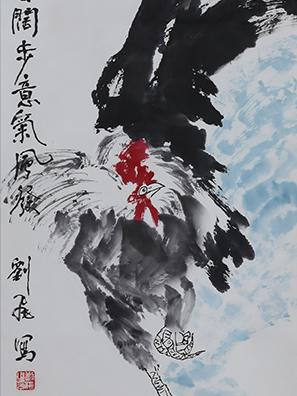 闊步意氣風發
劉 寫